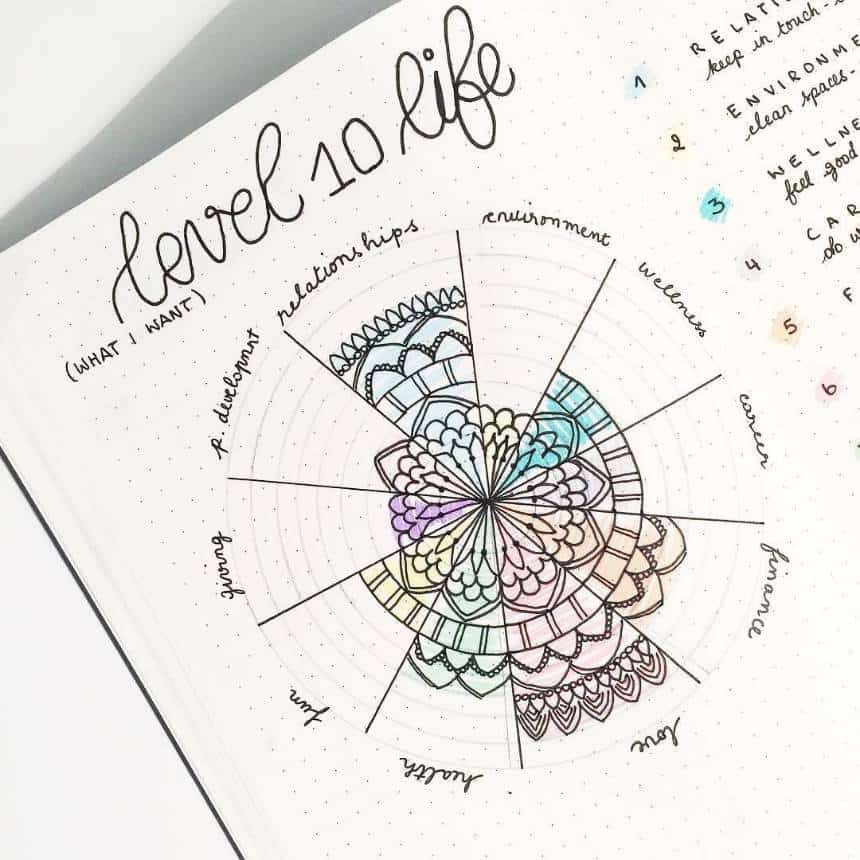 level 10 life
(WHAT I WANT)
relationships
environment
wellness
career
finance
love
health
fun
giving
p. development
1
keep in touch -
2
clean spaces -
3
feel good
4
do
5
6